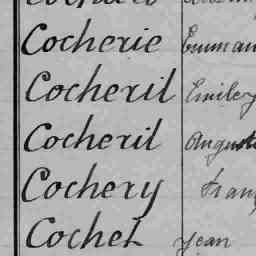 Cocherie
Cocheril Emiley
Cocheril Auguste
Cochery
Cochet Jean